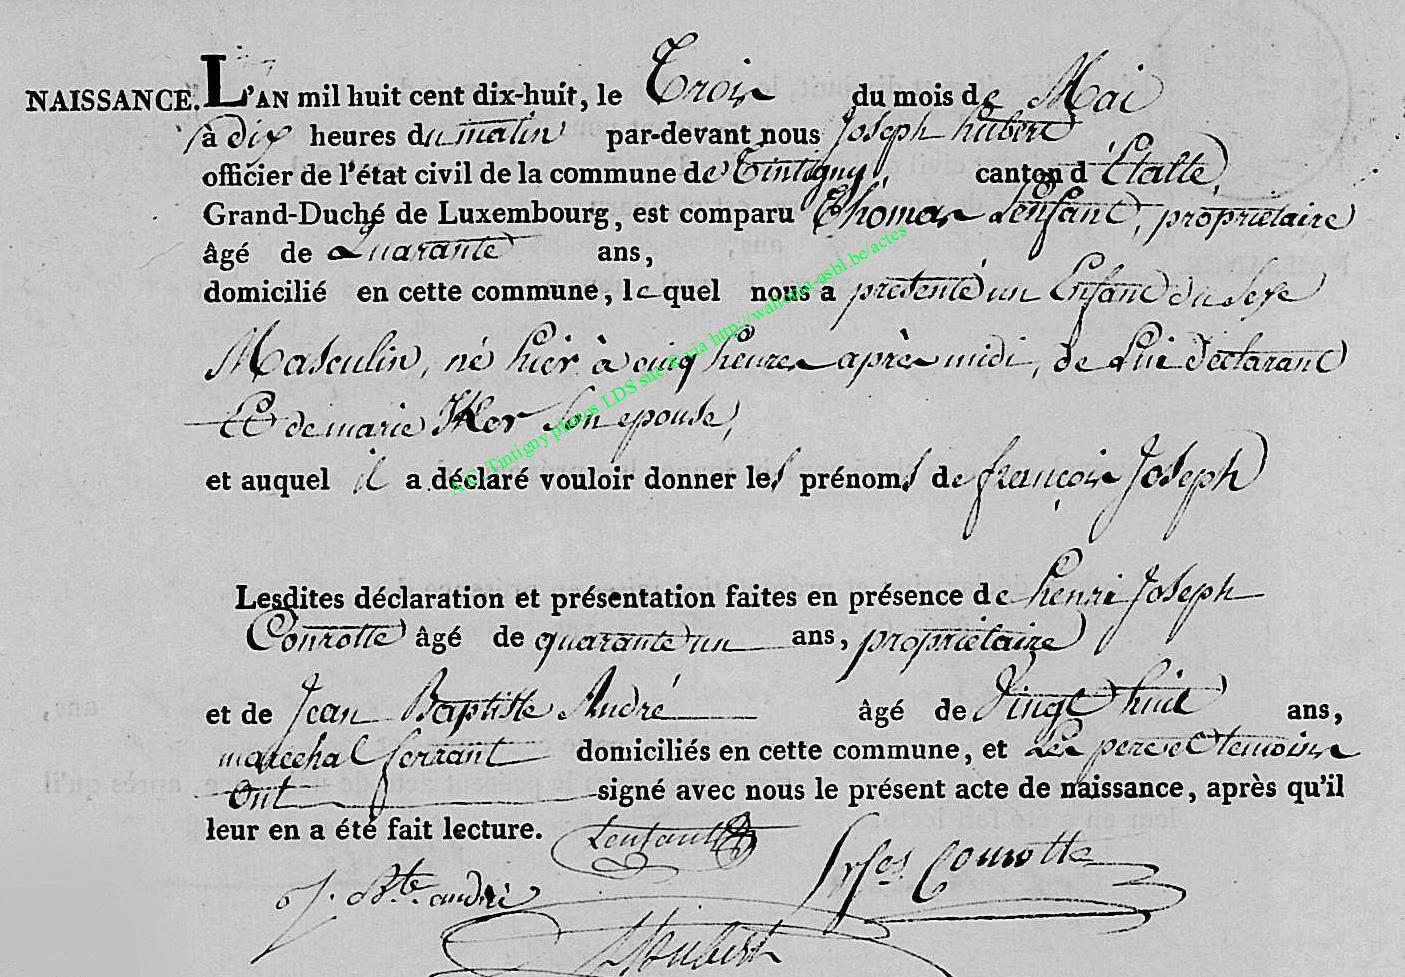 NAISSANCE. L'AN mil huit cent dix-huit, le Trois du mois de Mai
à dix heures du matin par-devant nous Joseph hubert
officier de l'état civil de la commune de Tintigny, canton d'Étalle,
Grand-Duché de Luxembourg, est comparu Thomas Lenfant, propriétaire
âgé de Quarante ans,
domicilié en cette commune, lequel nous a présenté un Enfant du sexe
Masculin, né hier à cinq heures après midi, de Lui déclarant
Et de marie Son epouse,
et auquel il a déclaré vouloir donner les prénoms de françois Joseph
Lesdites déclaration et présentation faites en présence de henri Joseph
Conrotte âgé de quarante un ans, propriétaire
et de Jean Baptiste André âgé de Vingt huit ans,
marechal ferrant domiciliés en cette commune, et Les pere et temoins
Ont signé avec nous le présent acte de naissance, après qu'il
leur en a été fait lecture.
Lenfant
Conrotte
J. Bte. andré
Hubert
A.C. Tintigny photos LDS site @ via http://wallonia-asbl.be/actes